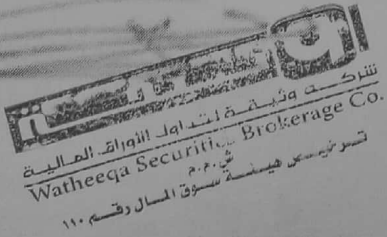 وثيقة
شركة وثيقة لتداول الأوراق المالية
Watheeqa Securities Brokerage Co.
ش.م.م
ترخيص هيئة سوق المال رقم ١١٠